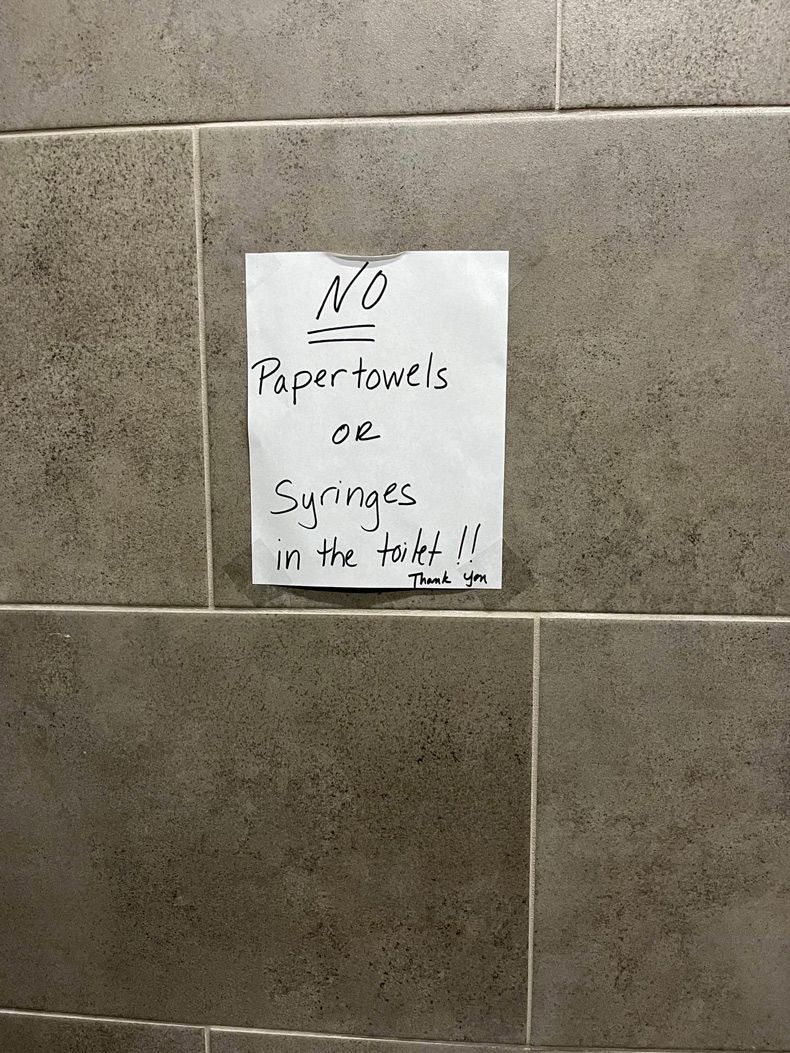 NO
Paper towels
OR
Syringes
in the toilet !!
Thank you